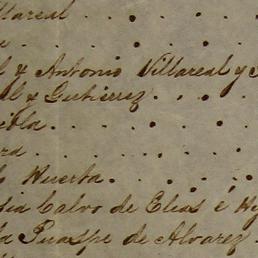 llareal . .
a . . . . .
l y Antonio Villareal y
al y Gutierrez . . .
ebla . . . . .
ra . . . . .
Huerta . . . .
dia Calvo de Elias é Hi
la de Alvarez .